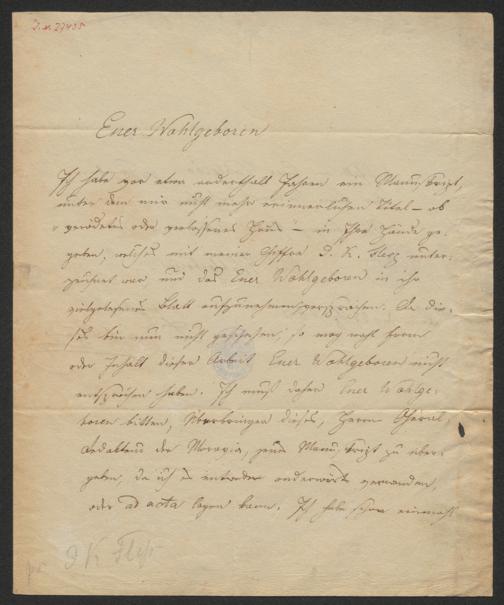 I. N. 27455
Euer Wohlgeboren
Ich habe vor etwa anderthalb Jahren ein Manuskript,
unter dem mir nicht mehr erinnerlichen Titel – ob
verödetes oder verlassenes Haus – in Ihre Hände ge-
geben, welches mit meiner Chiffre J. K. unter-
zeichnet war und das Euer Wohlgeboren in ihr
vielgelesenes Blatt aufzunehmen versprachen. Da die-
ses bis nun nicht geschehen, so mag wohl Form
oder Inhalt dieser Arbeit Euer Wohlgeboren nicht
entsprochen haben. Ich muß daher Euer Wohlge-
boren bitten, Überbringer dieses, Herrn
Redakteur der Moravia, jenes Manuskript zu über-
geben, da ich es entweder anderwärts verwenden,
oder ad acta legen kann. Ich habe schon einmahl